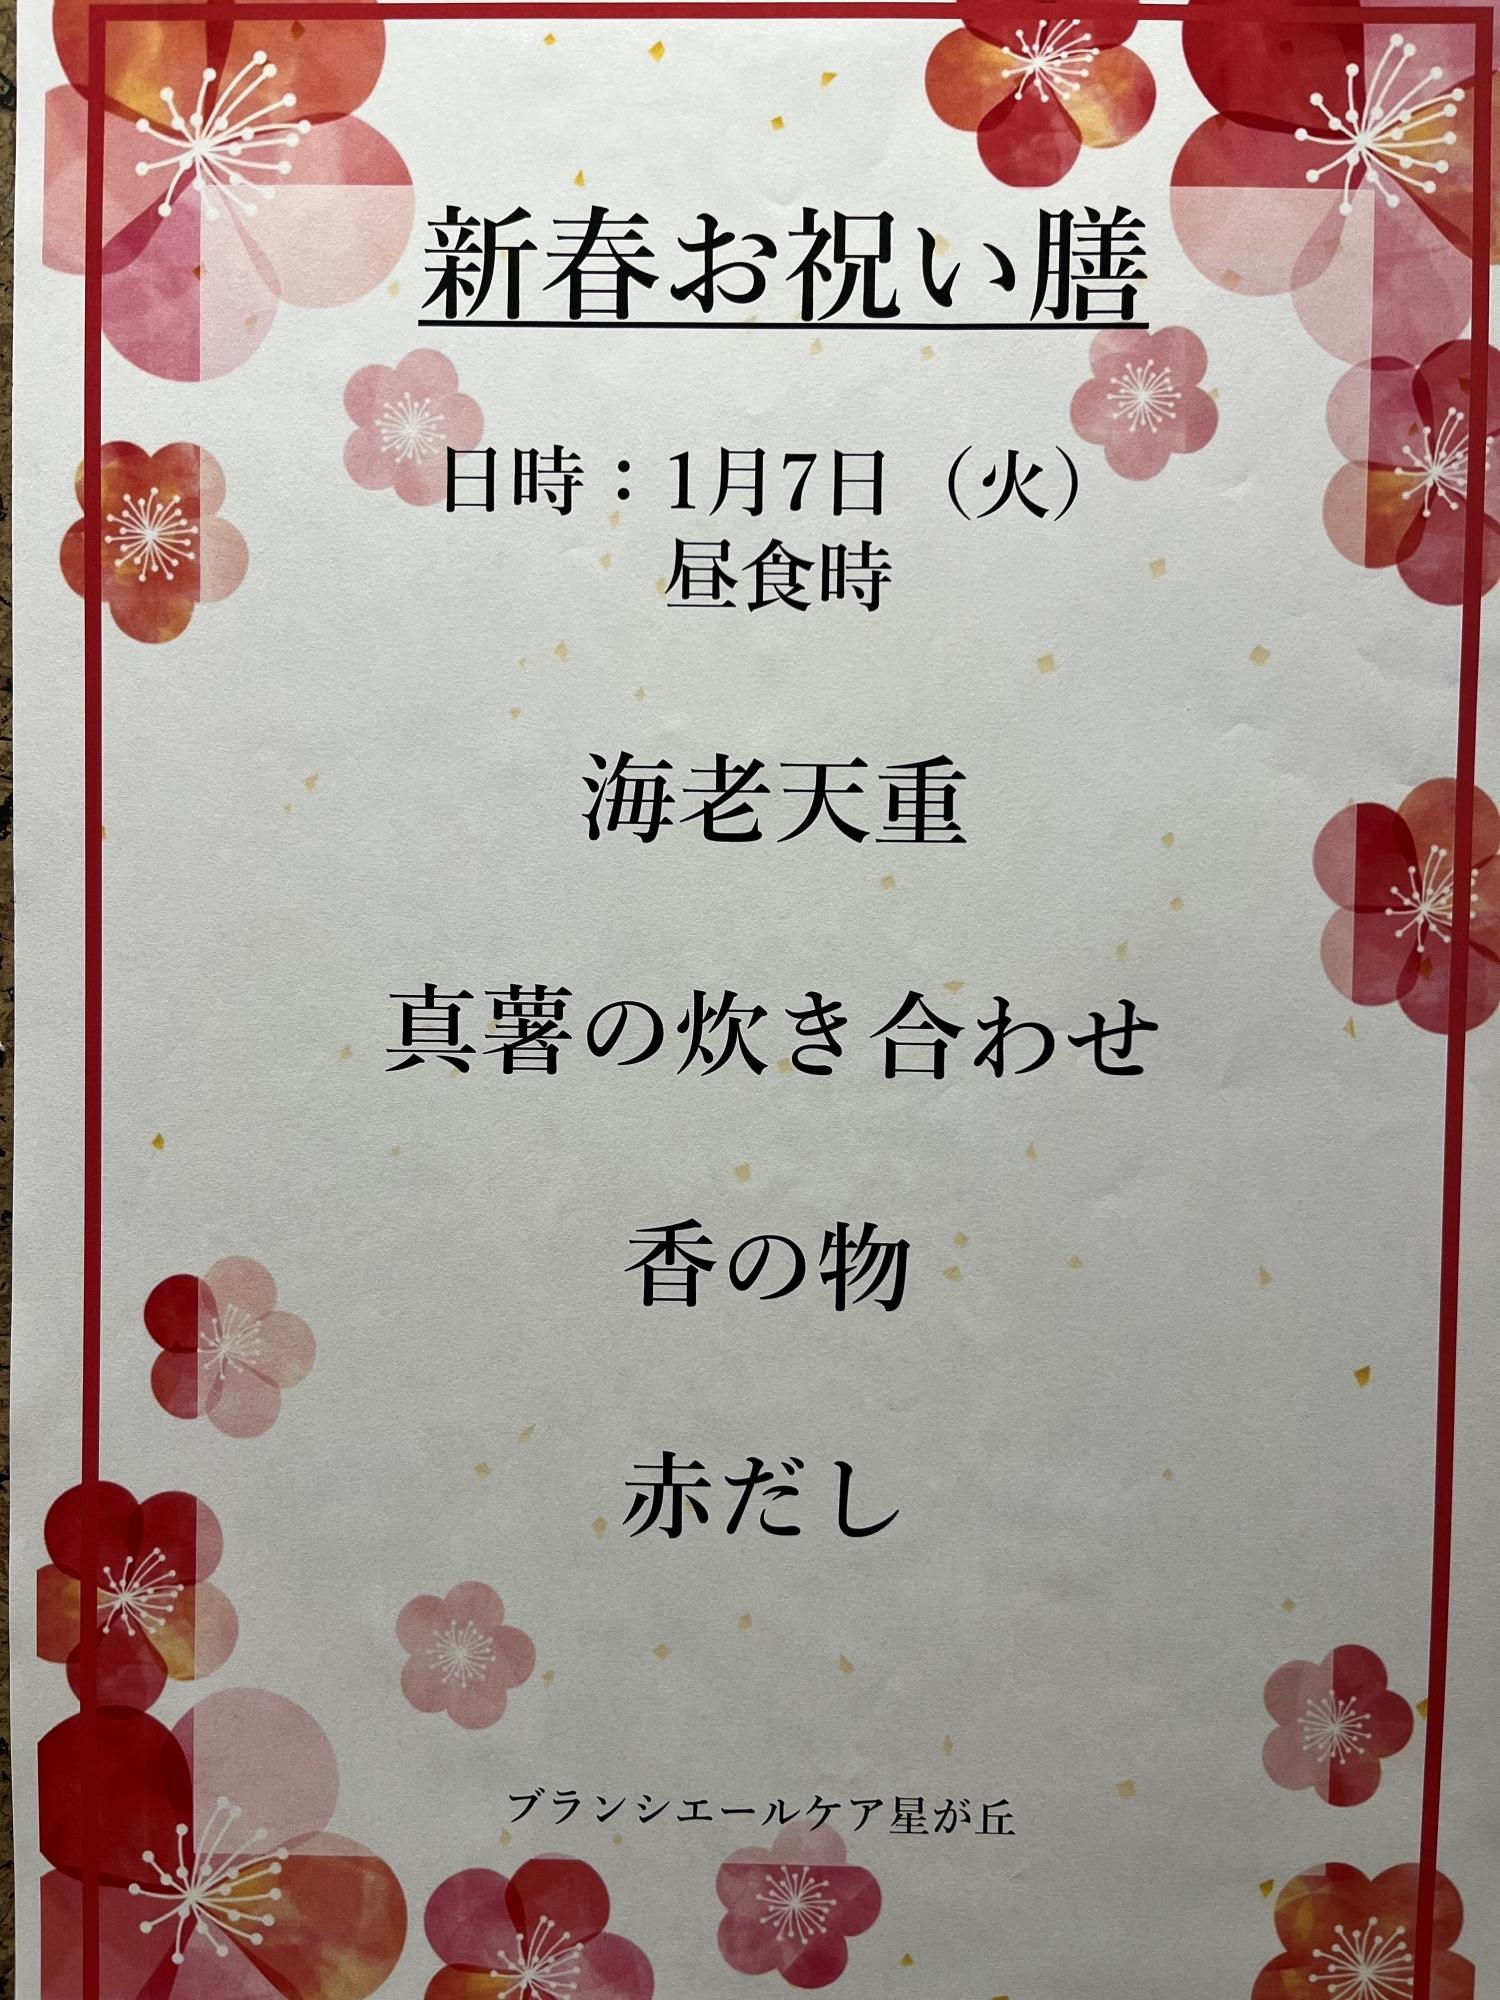 新春お祝い膳
日時：1月7日（火）
昼食時
海老天重
真薯の炊き合わせ
香の物
赤だし
ブランシエールケア星が丘